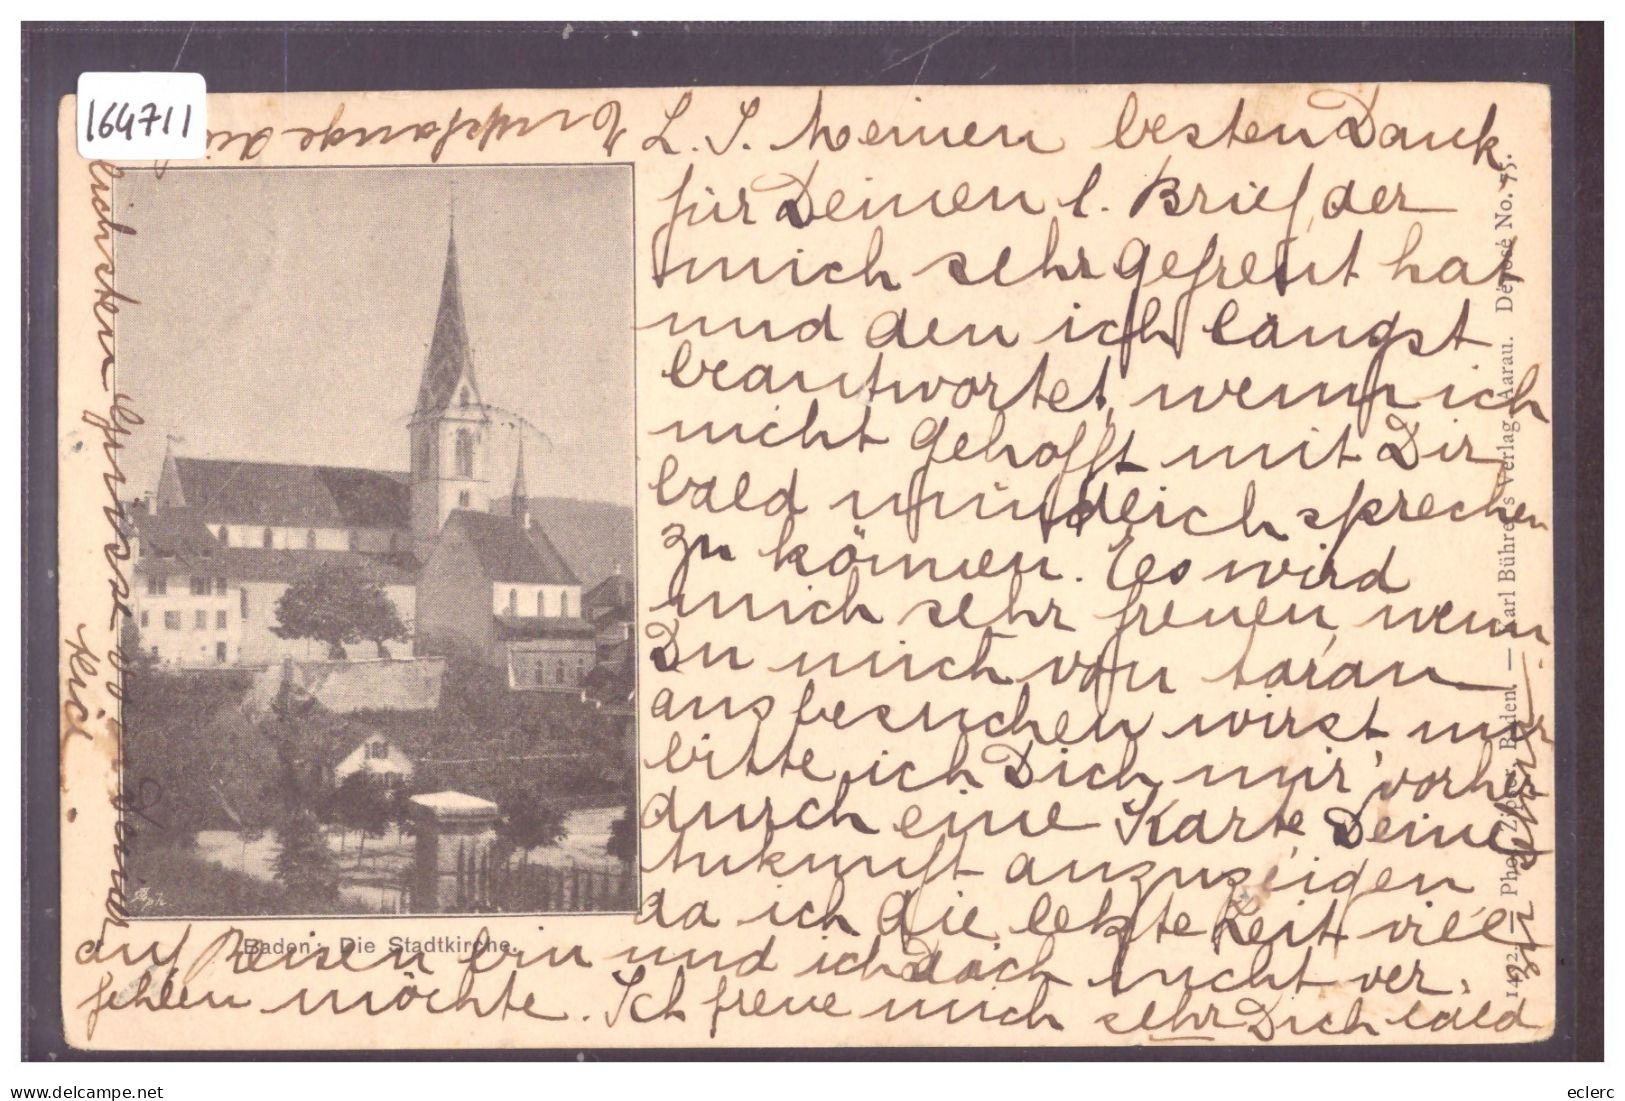 164711
L. S. Meinen besten Dank
für Deinen l. Brief, der
mich sehr gefreut hat
und den ich längst
beantwortet, wenn ich
nicht gehofft mit Dir
bald mündlich sprechen
zu können. Es wird
mich sehr freuen, wenn
Du mich von
aus besuchen wirst nur
bitte ich Dich mir vorher
durch eine Karte Deine
Ankunft anzuzeigen
da ich die letzte Zeit viel
auf Reisen bin und ich doch nicht ver-
fehlen möchte. Ich freue mich sehr Dich bald
Empfange die
Grüsse von Deiner
Baden: Die Stadtkirche.
1492 — Phot. Zipser, Baden. — Karl Bührers Verlag Aarau. Déposé No. 75.
eclerc